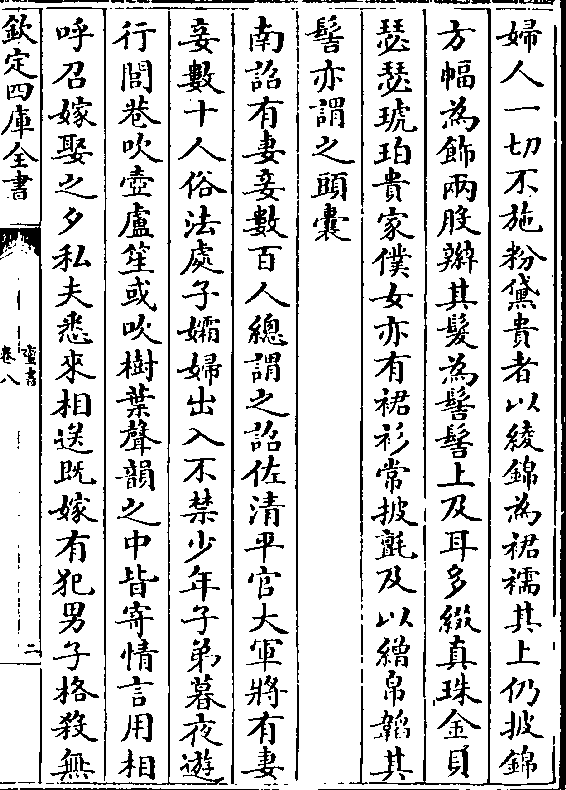 婦人一切不施粉黛貴者以綾錦為裙襦其上仍披錦
方幅為飾兩股辮其髮為髻髻上及耳多綴真珠金貝
瑟瑟琥珀貴家僕女亦有裙衫常披氈及以繒帛韜其
髻亦謂之頭囊
南詔有妻妾數百人總謂之詔佐清平官大軍將有妻
妾數十人俗法處子孀婦出入不禁少年子弟暮夜遊
行閭巷吹壺盧笙或吹樹葉聲韻之中皆寄情言用相
呼召嫁娶之夕私夫悉來相送既嫁有犯男子格殺無
欽定四庫全書
蠻書
卷八
二